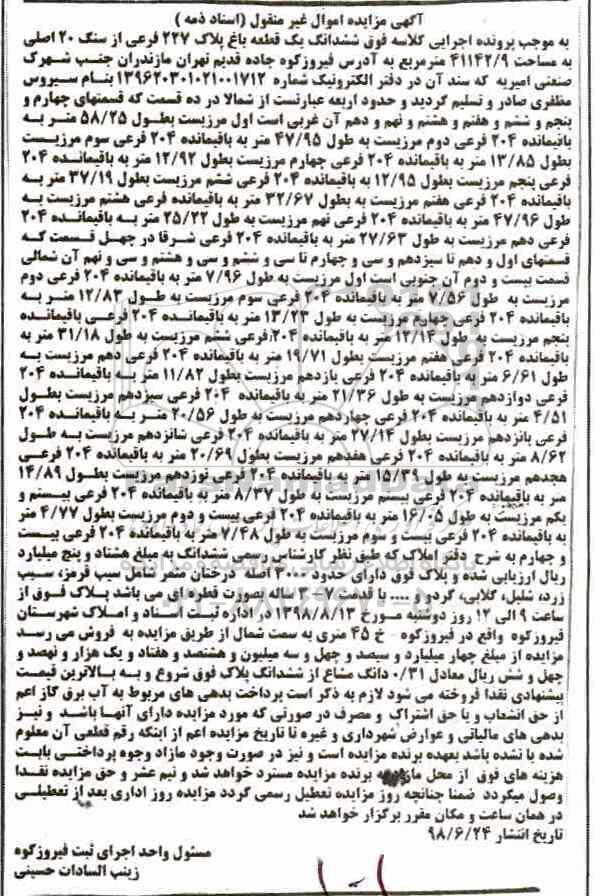 آگهی مزایده اموال غیر منقول (اسناد ذمه )
به موجب پرونده اجرایی کلاسه فوق ششدانگ یک قطعه باغ پلاک ۲۲۷ فرعی از سنگ ۲۰ اصلی
به مساحت ۴۱۱۴۲/۹ مترمربع به آدرس فیروزکوه جاده قدیم تهران مازندران جنب شهرک
صنعتی امیریه که سند آن در دفتر الکترونیک شماره ۱۳۹۶۲۰۳۰۱۰۲۱۰۰۱۷۱۲ بنام سیروس
مظفری صادر و تسلیم گردید و حدود اربعه عبارتست از شمالا در ده قسمت که قسمتهای چهارم و
پنجم و ششم و هفتم و هشتم و نهم و دهم آن غربی است اول مرزیست بطول ۵۸/۲۵ متر به
باقیمانده ۲۰۴ فرعی دوم مرزیست به طول ۴۷/۹۵ متر به باقیمانده ۲۰۴ فرعی سوم مرزیست
بطول ۱۳/۸۵ متر به باقیمانده ۲۰۴ فرعی چهارم مرزیست بطول ۱۲/۹۲ متر به باقیمانده ۲۰۴
فرعی پنجم مرزیست بطول ۱۲/۹۵ به باقیمانده ۲۰۴ فرعی ششم مرزیست بطول ۳۷/۱۹ متر به
باقیمانده ۲۰۴ فرعی هفتم مرزیست بطول ۳۲/۶۷ به باقیمانده ۲۰۴ فرعی هشتم مرزیست به
طول ۴۷/۹۶ متر به باقیمانده ۲۰۴ فرعی نهم مرزیست به طول ۲۵/۲۲ متر به باقیمانده ۲۰۴
فرعی دهم مرزیست به طول ۲۷/۶۳ متر به باقیمانده ۲۰۴ فرعی شرقا در چهل قسمت که
قسمتهای اول و دهم تا سیزدهم و سی و چهارم تا سی و ششم و سی و هشتم و سی و نهم آن شمالی
قسمت بیست و دوم آن جنوبی است اول مرزیست به طول ۷/۹۶ متر به باقیمانده ۲۰۴ فرعی دوم
مرزیست به طول ۷/۵۶ متر به باقیمانده ۲۰۴ فرعی سوم مرزیست به طول ۱۲/۸۳ متر به
باقیمانده ۲۰۴ فرعی چهارم مرزیست به طول ۱۳/۲۳ متر به باقیمانده ۲۰۴ فرعی باقیمانده
پنجم مرزیست به طول ۱۲/۱۴ متر به باقیمانده ۲۰۴ فرعی ششم مرزیست به طول ۳۱/۱۸ متر به
باقیمانده ۲۰۴ فرعی هفتم مرزیست بطول ۱۹/۷۱ متر به باقیمانده ۲۰۴ فرعی دهم مرزیست به
طول ۶/۶۱ متر به باقیمانده ۲۰۴ فرعی یازدهم مرزیست بطول ۱۱/۸۲ متر به باقیمانده ۲۰۴
فرعی دوازدهم مرزیست به طول ۲۱/۳۶ متر به باقیمانده ۲۰۴ فرعی سیزدهم مرزیست بطول
۴/۵۱ متر به باقیمانده ۲۰۴ فرعی چهاردهم مرزیست بطول ۲۰/۵۶ متر به باقیمانده ۲۰۴
فرعی پانزدهم مرزیست بطول ۲۷/۱۴ متر به باقیمانده ۲۰۴ فرعی شانزدهم مرزیست به طول
۸/۶۲ متر به باقیمانده ۲۰۴ فرعی هفدهم مرزیست بطول ۲۰/۶۹ متر به باقیمانده ۲۰۴ فرعی
هجدهم مرزیست به طول ۱۵/۳۹ متر به باقیمانده ۲۰۴ فرعی نوزدهم مرزیست بطول ۱۴/۸۹
متر به باقیمانده ۲۰۴ فرعی بیستم مرزیست به طول ۸/۳۷ متر به باقیمانده ۲۰۴ فرعی بیستم و
یکم مرزیست به طول ۱۶/۰۵ متر به باقیمانده ۲۰۴ فرعی بیست و دوم مرزیست بطول ۴/۷۷ متر
به باقیمانده ۲۰۴ فرعی بیست و سوم مرزیست به طول ۷/۴۸ متر به باقیمانده ۲۰۴ فرعی بیست
و چهارم به شرح دفتر املاک که طبق نظر کارشناس رسمی ششدانگ به مبلغ هشتاد و پنج میلیارد
ریال ارزیابی شده و پلاک فوق دارای حدود ۴۰۰۰ اصله درختان مثمر شامل سیب قرمز، سیب
زرد، شلیل، گلابی، گردو و .... با قدمت ۷-۳ ساله بصورت قطره ای می باشد پلاک فوق از
ساعت ۹ الی ۱۲ روز دوشنبه مورخ ۱۳۹۸/۸/۱۳ در اداره ثبت اسناد و املاک شهرستان
فیروزکوه واقع در فیروزکوه - خ ۴۵ متری به سمت شمال از طریق مزایده به فروش می رسد
مزایده از مبلغ چهار میلیارد و سیصد و چهل و سه میلیون و هشتصد و هفتاد و یک هزار و نهصد و
چهل و شش ریال معادل ۰/۳۱ دانگ مشاع از ششدانگ پلاک فوق شروع و به بالاترین قیمت
پیشنهادی نقدا فروخته می شود لازم به ذکر است پرداخت بدهی های مربوط به آب برق گاز اعم
از حق انشعاب و یا حق اشتراک و مصرف در صورتی که مورد مزایده دارای آنها باشد و نیز
بدهی های مالیاتی و عوارض شهرداری و غیره تا تاریخ مزایده اعم از اینکه رقم قطعی آن معلوم
شده یا نشده باشد بعهده برنده مزایده است و نیز در صورت وجود مازاد وجوه پرداختی بابت
هزینه های فوق از محل مازاد به برنده مزایده مسترد خواهد شد و نیم عشر و حق مزایده نقدا
وصول میگردد ضمنا چنانچه روز مزایده تعطیل رسمی گردد مزایده روز اداری بعد از تعطیلی
در همان ساعت و مکان مقرر برگزار خواهد شد
تاریخ انتشار ۹۸/۶/۲۴
مسئول واحد اجرای ثبت فیروزکوه
زینب السادات حسینی